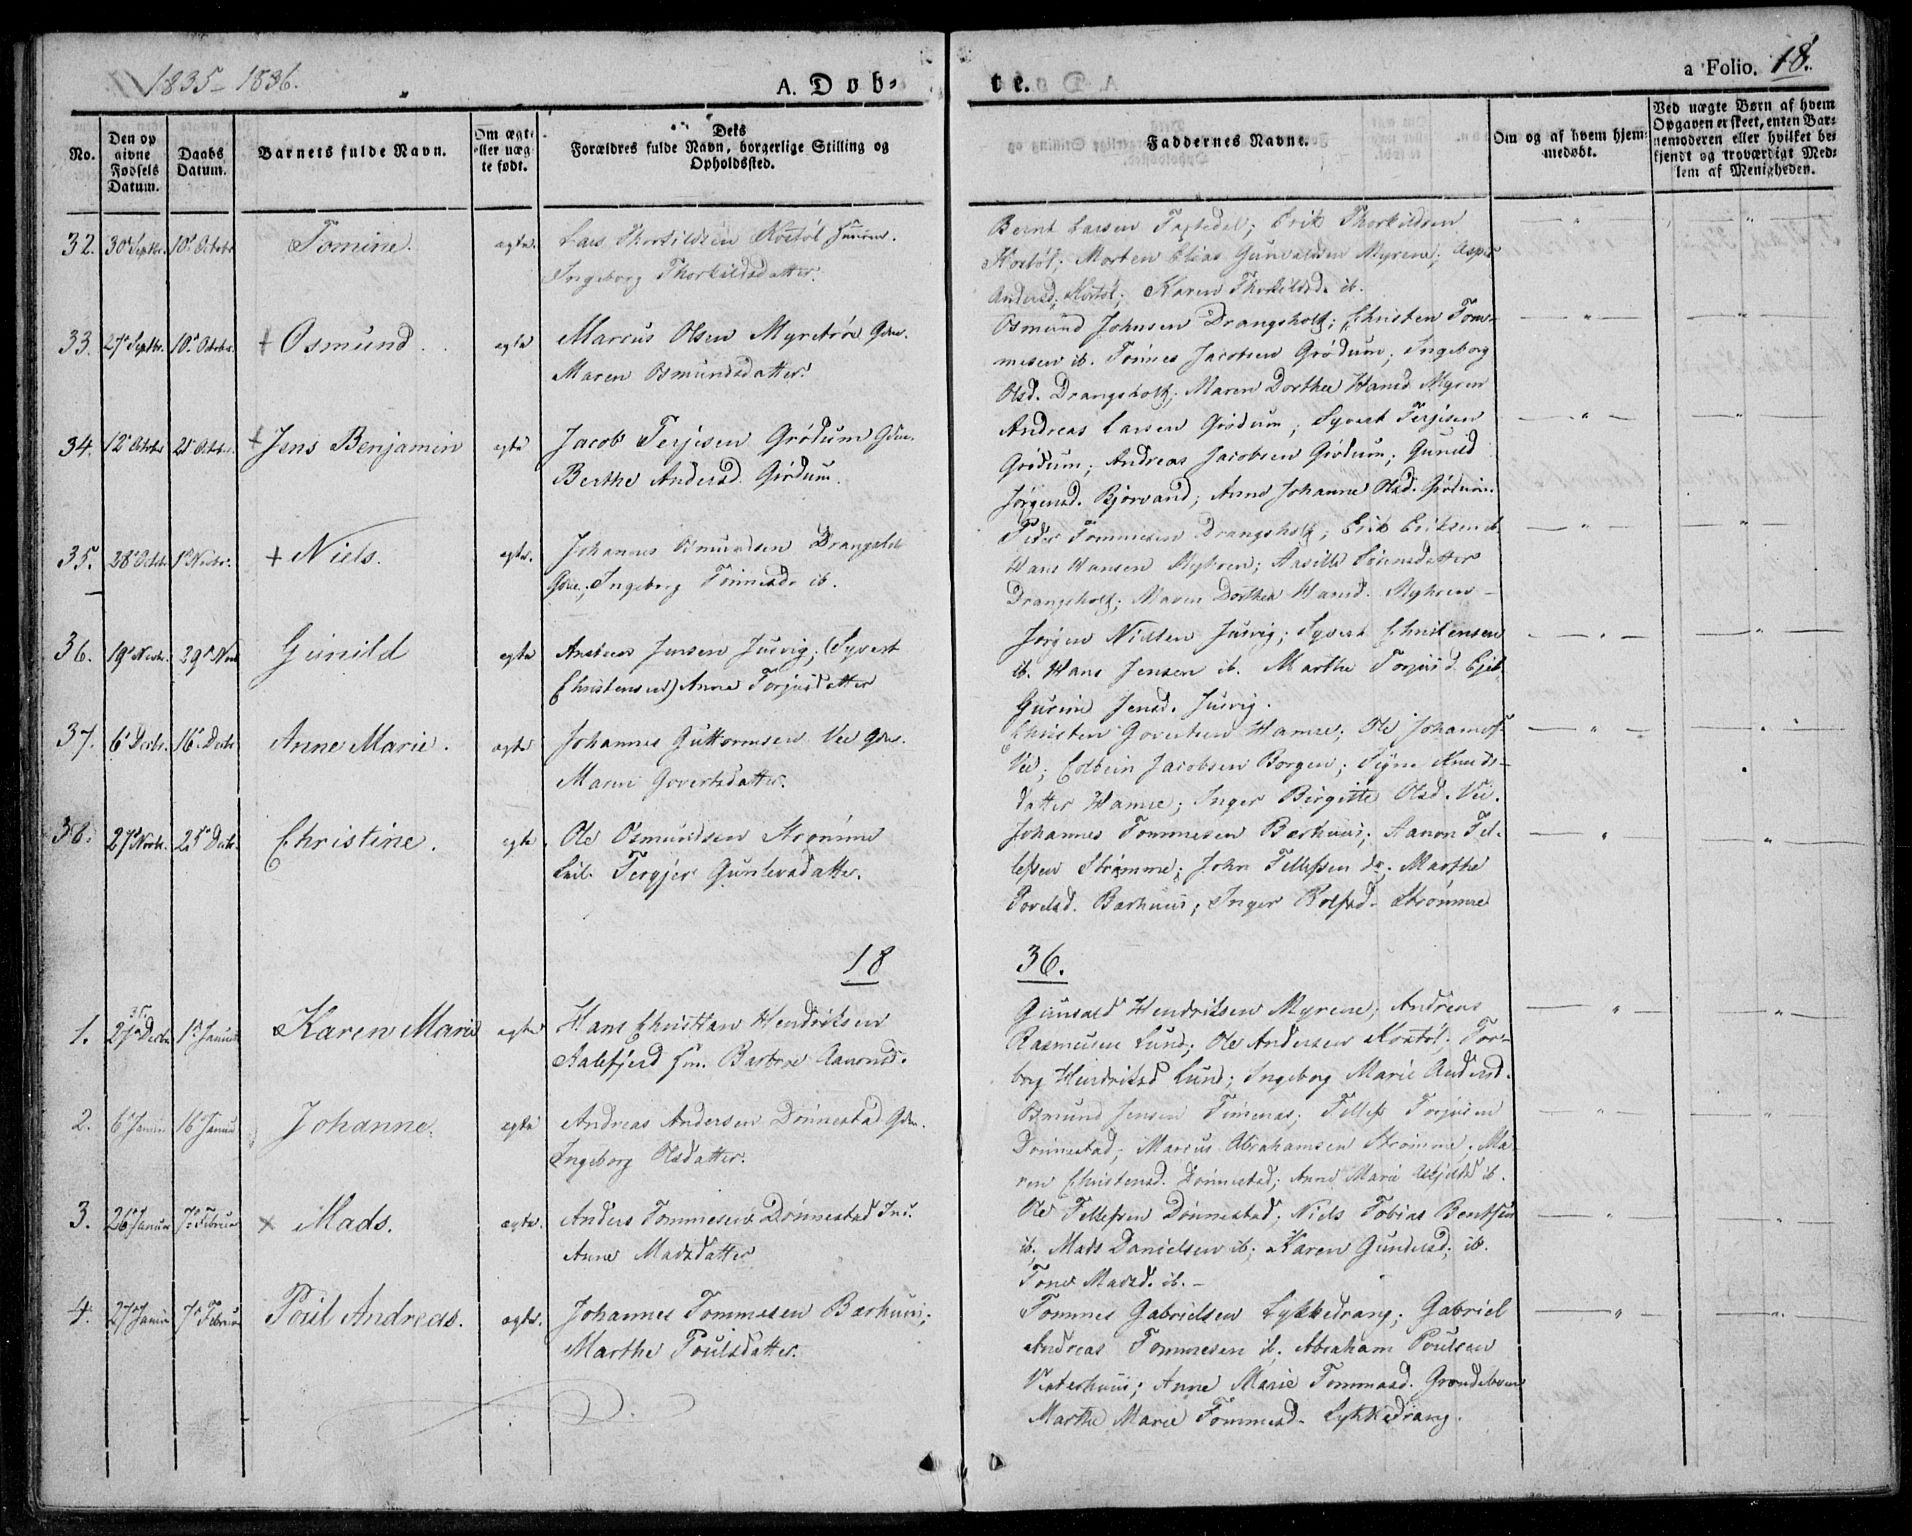 1835-1836.
A. Døb-
te.
a Folio. 18.
No.
Den op
givne
Fødsels
Datum.
Daabs
Datum.
Barnets fulde Navn.
Om ægte
eller uæg-
te født.
Dets
Forældres fulde Navn, borgerlige Stilling og
Opholdssted.
Faddernes Navne.
Om og af hvem hjem-
medøbt.
Ved uægte Børn af hvem
Opgaven er skeet, enten Bar-
nemoderen eller hvilket be-
kjendt og troværdigt Med-
lem af Menigheden.
32. 30 Septbr. 10 Octobr Tomine. ægte. Lars Thorkildsen Kostøl
Ingeborg Thorkildsdatter.
Bernt Larsen Erik Thorkildsen
Kostøl; Morten Elias Gunvaldsen Myrene;
Andersd. Kostøl; Karen Thorkildsd. ib.
33. 27 Septbr. 10 Octobr. + Osmund. ægte Marcus Olsen Gdm.
Maren Osmundsdatter.
Osmund Johnsen Drangsholt; Christen Tom-
mesen ib. Tønnes Jacobsen Grødum; Ingeborg
Olsd. Drangsholt; Maren Dorthea Hansd. Myren
34. 12 Octobr 25 Octobr. + Jens Benjamin ægte Jacob Terjesen Grødum Gdm.
Berthe Andersd. Grødum.
Andreas Larsen Grødum; Syvert Terjesen
Grødum; Andreas Jacobsen Grødum; Gunild
Jørgensd. Bjorvand; Anne Johanne Olsd. Grødum.
35. 28 Octbr. 1 Novbr. + Niels. ægte. Johannes Osmundsen
Gdm; Ingeborg Tønnesd. ib.
Peder Tommesen Drangsholt; Erik Eriksen ib
Hans Hansen Myhren; Aasille Sørensdatter
Drangsholt; Maren Dorthea Hansd. Myhren -
36. 19 Novbr. 29 Nov Gunild ægte Andreas Jensen Jusvig; (Syvert
Christensen) Anne Torjusdatter
Jørgen Nielsen Jusvig; Syvert Christensen
ib. Hans Jensen ib. Marthe Torjusd.
Gurine Jensd. Jusvig.
37. 6 Decbr. 16 Decbr Anne Marie. ægte Johannes Guttormsen Vee Gdm.
Maren Govertsdatter.
Christen Govertsen Hamre; Ole Johannes.
Vee; Colbein Jacobsen Borgen; Signe Knuds-
datter Hamre; Inger Birgitte Olsd. Vee.
38. 27 Novbr. 25 Decbr. Christine. ægte. Ole Osmundsen Strømme
Gunlevsdatter.
Johannes Tommesen Barhuus; Aanon Tel-
lefsen Strømme; John Tellefsen do. Marthe
Povelsd. Barhuus; Inger Rolfsd. Strømme
18
36.
1. 27 Decbr 1 Januar Karen Marie ægte Hans Christian Hendriksen
Aalefjord Aanonsd.
Gunvald Hendriksen Myrene; Andreas
Rasmusen Lund; Ole Andersen Kostøl; Tor-
borg Hendriksd Lund; Ingeborg Marie Andersd.
2. 6 Januar 16 Januar Johanne. ægte Andreas Andersen Dønnestad Gdm.
Ingeborg Olsdatter.
Osmund Jensen Timenes; Tellef Torjusen
Dønnestad; Marcus Abrahamsen Strømme; Ma-
ren Christensd. Dønnestad; Anne Marie ib.
3. 26 Januar 7 Februar × Mads. ægte. Anders Tommesen Dønnestad
Anne Madsdatter
Ole Tellefsen Dønnestad; Niels Tobias Bentsen
ib. Mads Danielsen ib; Karen Gundersd. ib.
Tone Madsd. ib. -
4. 27 Januar 7 Februar Poul Andreas. ægte. Johannes Tommesen Barhuus;
Marthe Poulsdatter.
Tommes Gabrielsen Lykkedrang; Gabriel
Andreas Tommesen ib. Abraham Poulsen
Anne Marie Tommesd.
Marthe Marie Tommesd. Lykkedrang.